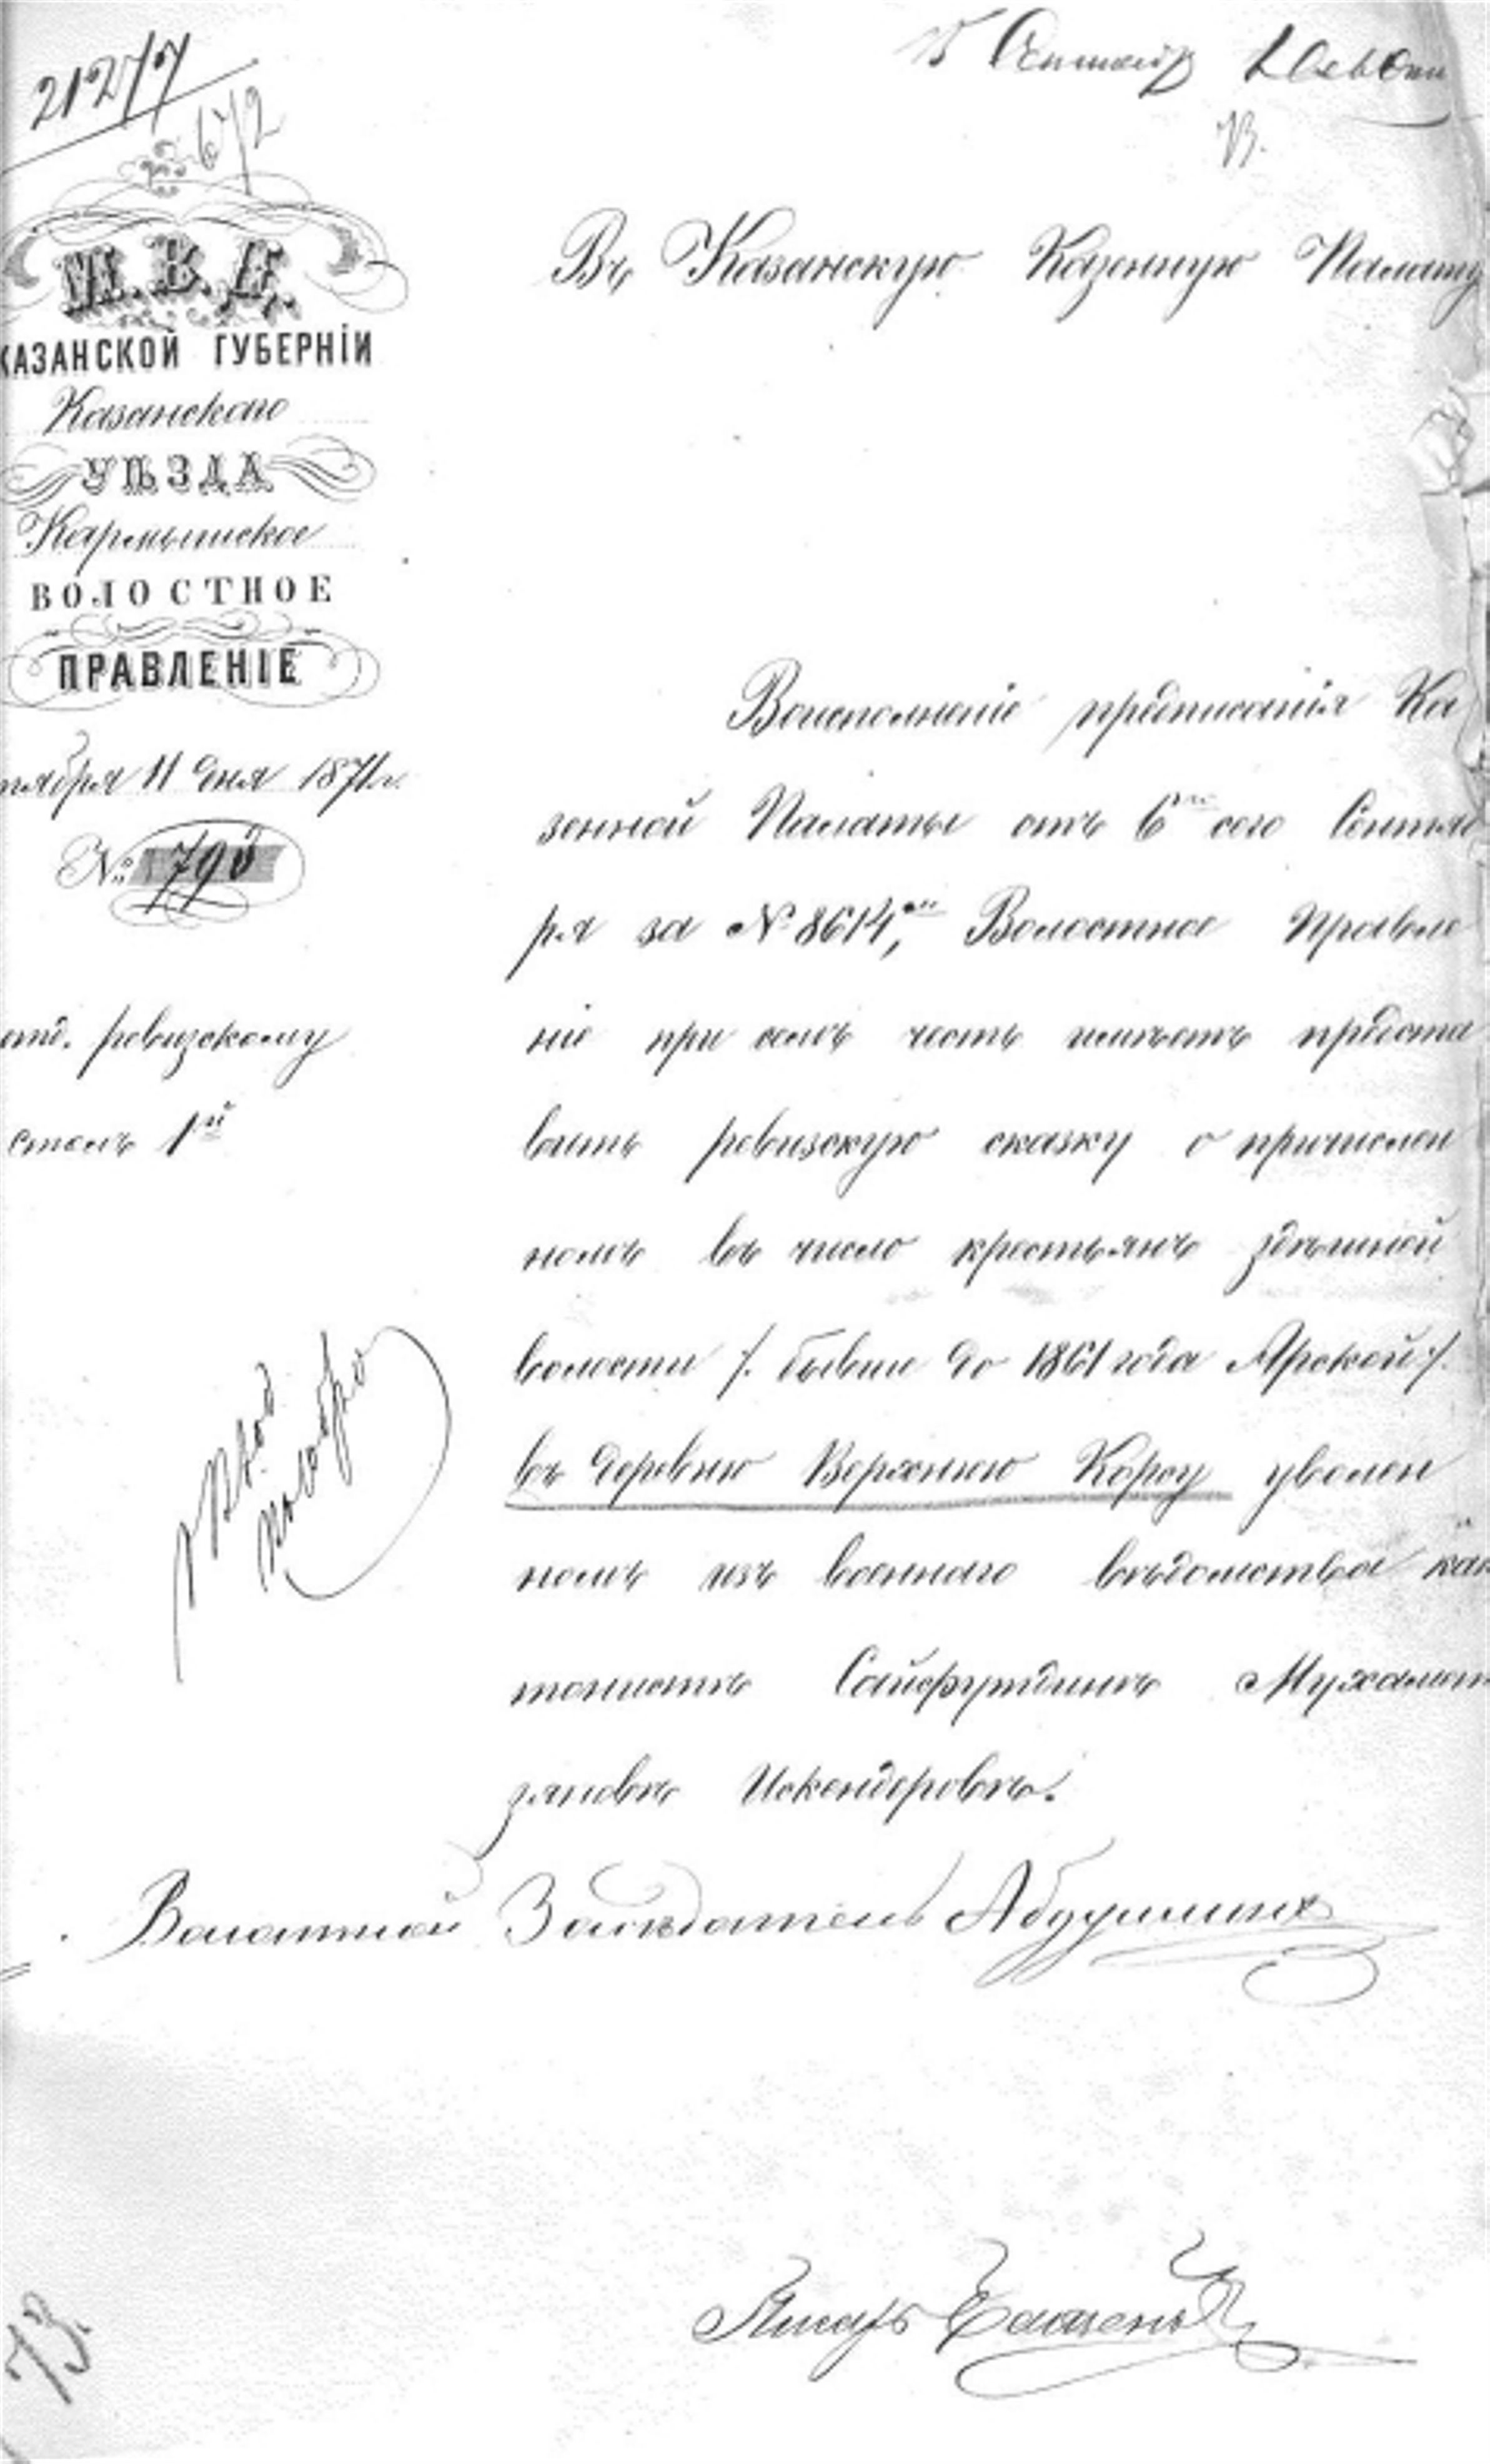 21277
672
15 Сентяб
73.
М. В. Д.
КАЗАНСКОЙ ГУБЕРНІИ
Казанскаго
УѢЗДА
Кармышское
ВОЛОСТНОЕ
ПРАВЛЕНІЕ
тября 11 дня 1871 г.
№ 798
отд. ревизскому
столъ 1й
Въ Казанскую Казенную Палату
Воисполненіе предписанія Ка
зенной Палаты отъ 6го сего Сентяб
ря за № 8614, Волостное Правле
ніе при семъ честь имѣетъ предста
вить ревизскую сказку о причислен
номъ въ число крестьянъ здѣшней
волости /. бывши до 1861 года Арской ./
въ деревню Верхнюю Корсу уволен
номъ изъ военнаго вѣдомства кан
тонистѣ Сайфутдинѣ Мухамет
зяновѣ Искендеровѣ.
Волостной Засѣдатель
Писарь
73.